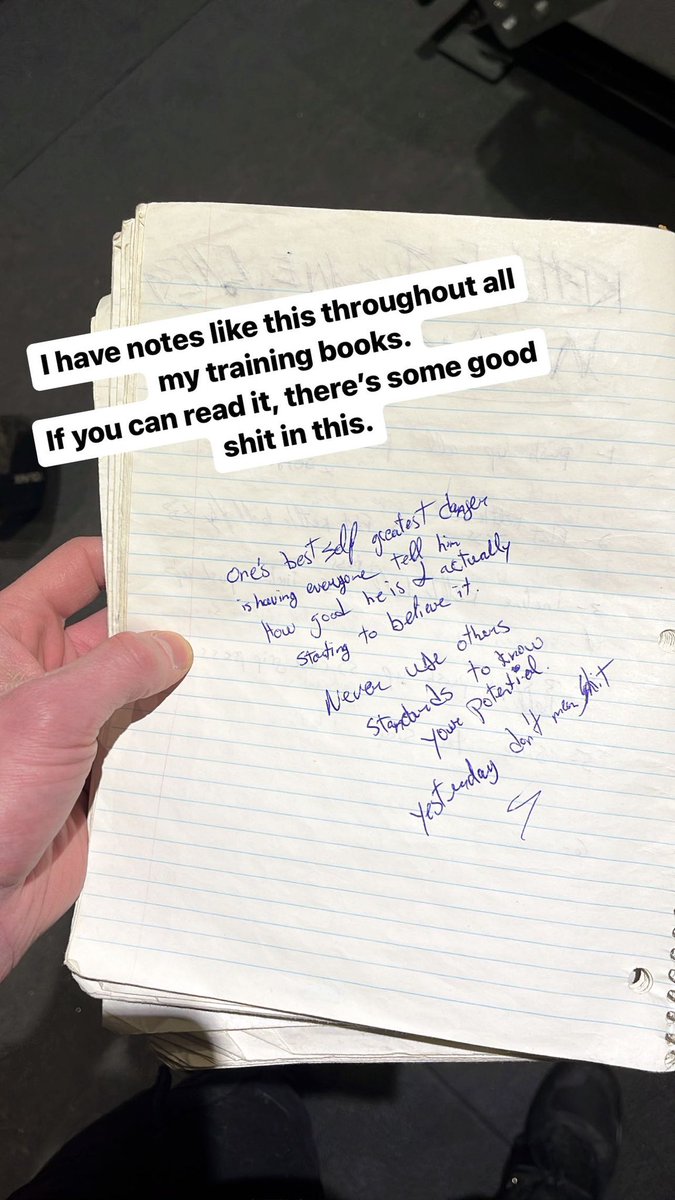 I have notes like this throughout all
my training books.
If you can read it, there’s some good
shit in this.
One's best self greatest danger
is having everyone tell him
How good he is & actually
starting to believe it.
Never use others
standards to know
your potential.
yesterday don't mean shit